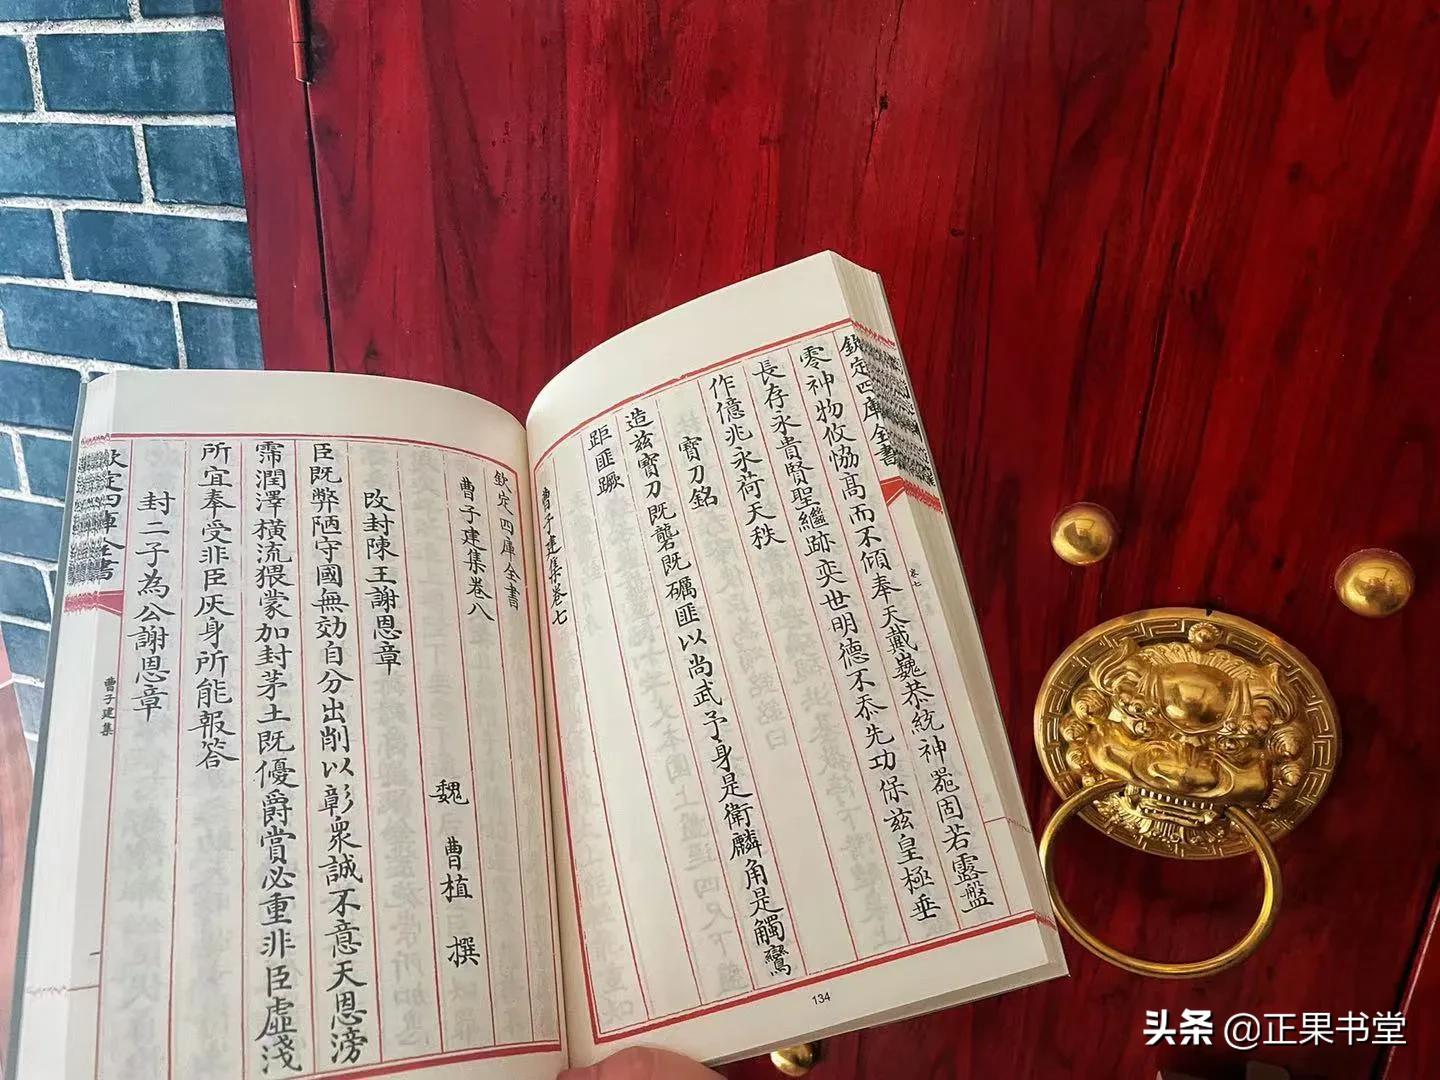 欽定四庫全書
卷七
零神物攸恊髙而不傾奉天戴巍恭統神噐固若露盤
長存永貴賢聖繼跡奕世明德不忝先功保兹皇極垂
作億兆永荷天秩
寳刀銘
造兹寳刀既礱既礪匪以尚武予身是衛麟角是觸鸞
距匪蹶
曹子建集卷七
134
欽定四庫全書
曹子建集卷八
魏 曹植 撰
改封陳王謝恩章
臣既弊陋守國無効自分出削以彰衆誠不意天恩滂
霈潤澤横流猥蒙加封茅土既優爵賞必重非臣虚淺
所宜奉受非臣灰身所能報答
封二子為公謝恩章
欽定四庫全書
曹子建集
头条 @正果书堂